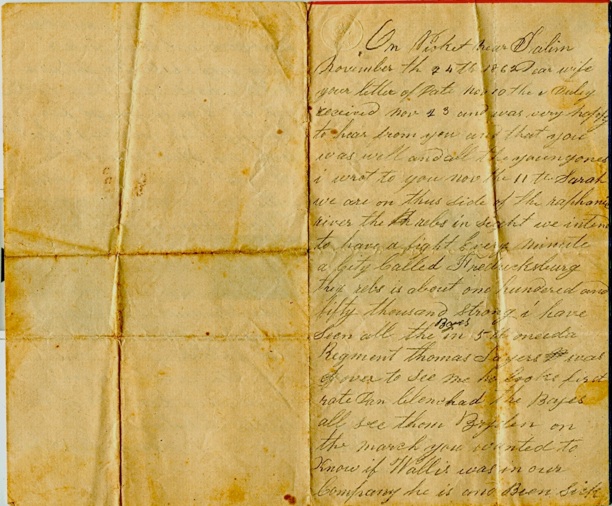 On Picket Near Salim
November the 24th 1862 Dear wife
your letter of Date nov 10 the I Duley
received nov 23 and was very happy
to hear from you and that you
was well and all the young ones
i wrot to you nov the 11th Sarah
we are on this side of the raphanic
river the rebs in sight we intend
to have a fight Every minute
a City Called Fredricksburg
the rebs is about one hundred and
fifty thousand strong i have
Seen all the Boyes in 5th oneida
Regment thomas Sayers was
over to see me he looks first
rate had the Boyes
all see them on
the march you wanted to
Know if Wallis was in our
Company he is and Been Sick